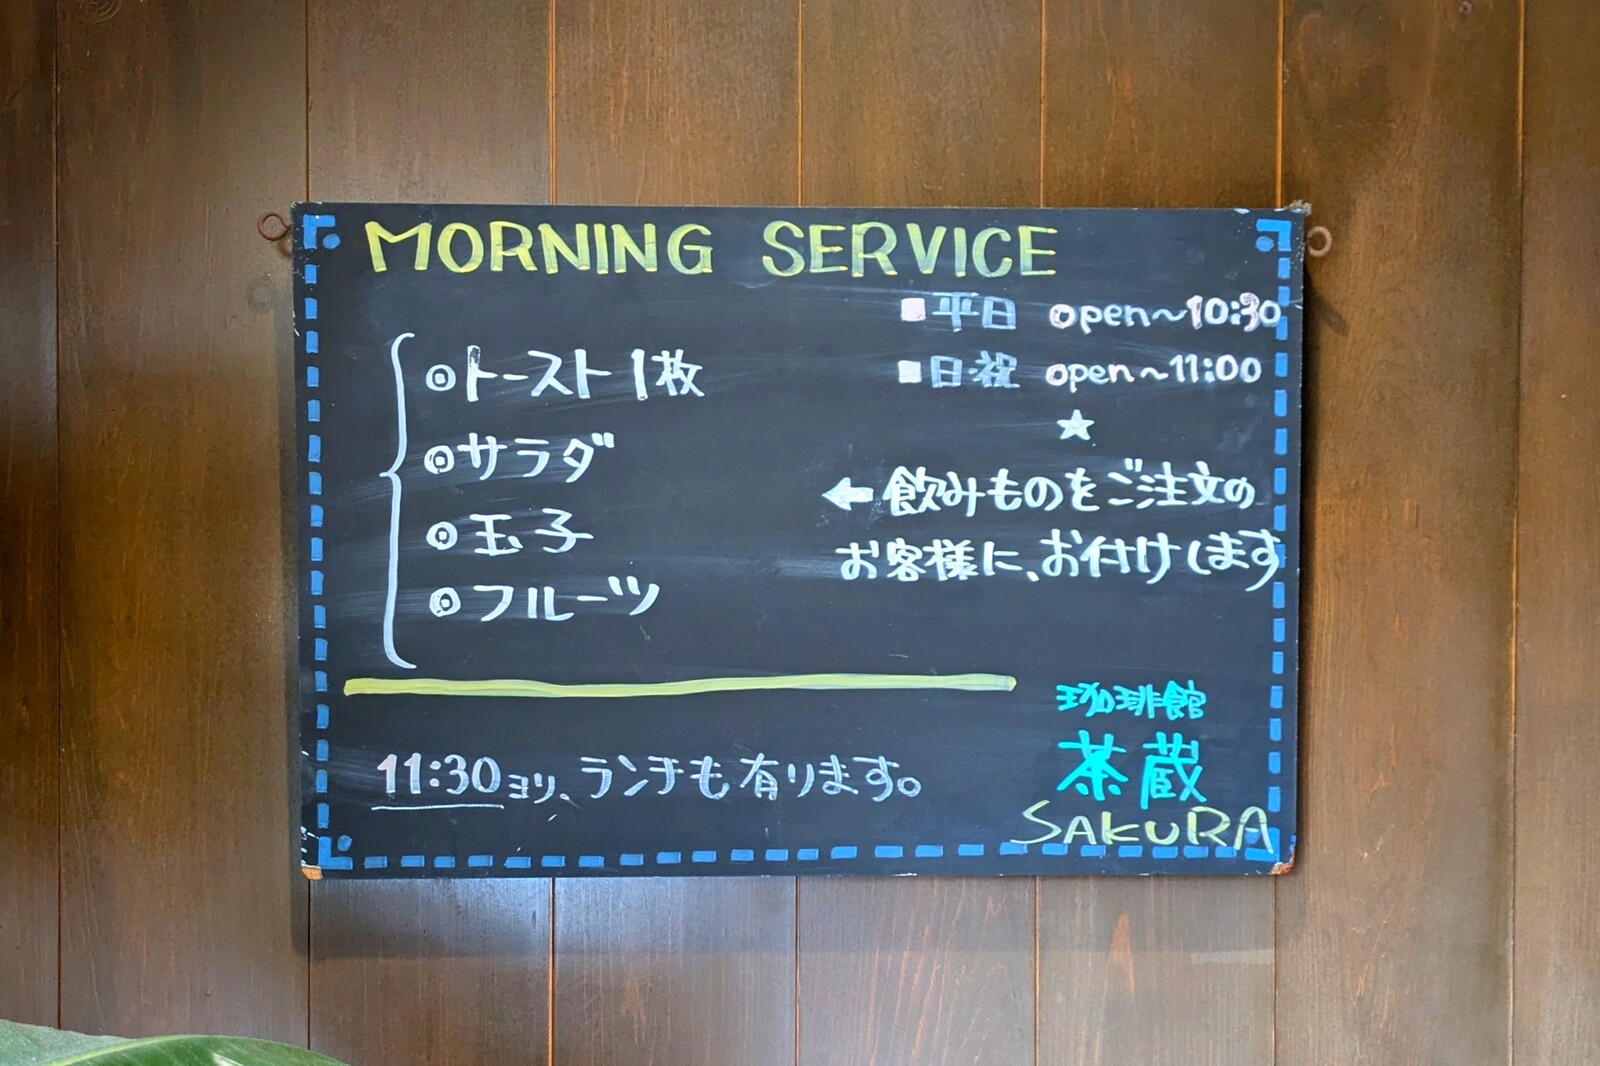 MORNING SERVICE
■平日 open~10:30
■日・祝 open~11:00
◎トースト1枚
◎サラダ
◎玉子
◎フルーツ
★
←飲みものをご注文の
お客様に、お付けします
11:30ヨリ、ランチも有ります。
珈琲館
茶蔵
SAKURA